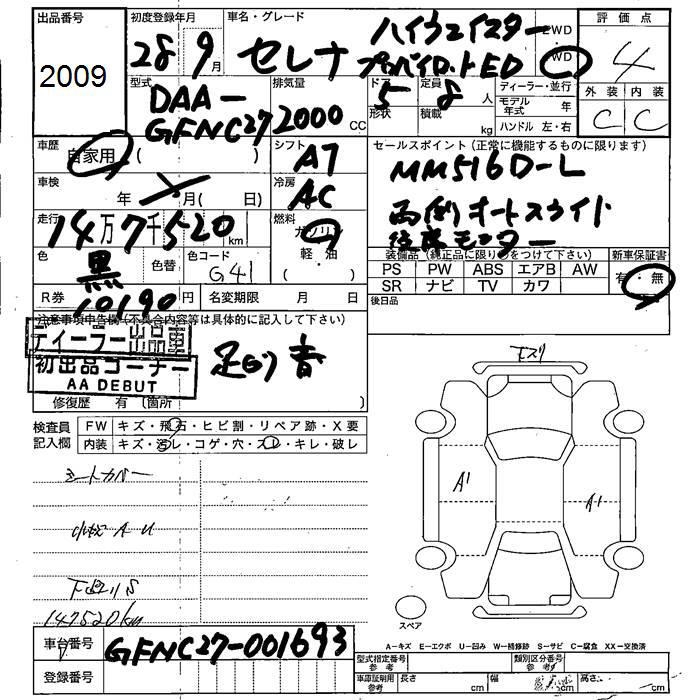 出品番号 初度登録年月 車名・グレード 評価点
2009 28 9月 セレナ ハイウェイスター 2WD
プロパイロットED WD 4
型式 排気量 ドア 定員 ディーラー・並行 外装 内装
DAA- 5 8人 モデル年式 年
GFNC27 2000cc 形状 積載 kg ハンドル 左・右 C C
車歴 自家用 ( ) シフト AT セールスポイント(正常に機能するものに限ります)
車検 年 月( 日) 冷房 AC MM516D-L
走行 14万7千520km 燃料 ガソリン 両側オートスライド
軽・油 後席モニター
色 黒 色替 色コード G41 装備品(純正品に限り○をつけて下さい) 新車保証書
PS PW ABS エアB AW 有・無
SR ナビ TV カワ
R券 10190円 名変期限 月 日 後日品
注意事項申告欄(不具合内容等は具体的に記入して下さい)
ディーラー出品車
初出品コーナー
AA DEBUT
足回り音
修復歴 有 (箇所 )
検査員記入欄 FW キズ・飛石・ヒビ割・リペア跡・X要
内装 キズ・汚レ・コゲ・穴・スレ・キレ・破レ
シートカバー
小キズ A U
下回りS
147520km
A1
A1
スペア
A-キズ E-エクボ U-凹み W-補修跡 S-サビ C-腐食 XX-交換済
車台番号 GFNC27-001693
登録番号
型式指定番号 参考 類別区分番号 参考
車庫証明用 参考 長さ cm 幅 高さ cm